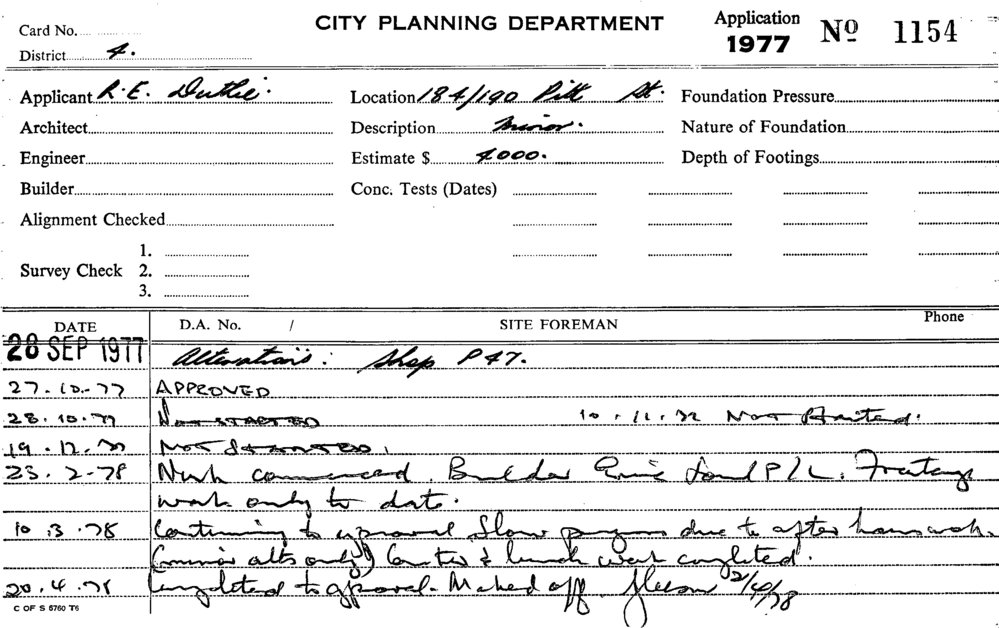 CITY PLANNING DEPARTMENT
Application
1977 Nº 1154
Card No.
District 4.
Applicant R.E. Duthie. Location 184/190 Pitt St. Foundation Pressure
Architect Description minor. Nature of Foundation
Engineer Estimate $ 4000. Depth of Footings
Builder Conc. Tests (Dates)
Alignment Checked
1.
Survey Check 2.
3.
DATE D.A. No. / SITE FOREMAN Phone
28 SEP 1977 Alterations: Shop P47.
27.10.77 APPROVED
28.10.77 NOT STARTED 10.11.77 Not Started.
19.12.77 NOT STARTED.
23.2-78 Work commenced. Builder P/L.
work only to date.
10.3.78 Continuing to approval slow progress due to after hours work.
(minor alts only) Counter & work completed.
20.4.78 Completed to approval. Marked off. 2/4/78
C OF S 5760 T6